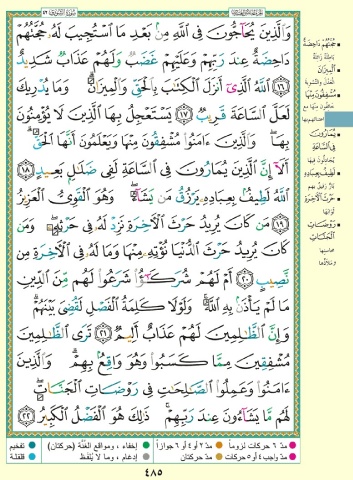 وَالَّذِينَ يُحَاجُّونَ فِي اللَّهِ مِنْ بَعْدِ مَا اسْتُجِيبَ لَهُ حُجَّتُهُمْ
دَاحِضَةٌ عِنْدَ رَبِّهِمْ وَعَلَيْهِمْ غَضَبٌ وَلَهُمْ عَذَابٌ شَدِيدٌ
١٦ اللَّهُ الَّذِي أَنْزَلَ الْكِتَابَ بِالْحَقِّ وَالْمِيزَانَ وَمَا يُدْرِيكَ
لَعَلَّ السَّاعَةَ قَرِيبٌ ١٧ يَسْتَعْجِلُ بِهَا الَّذِينَ لَا يُؤْمِنُونَ
بِهَا وَالَّذِينَ ءَامَنُوا مُشْفِقُونَ مِنْهَا وَيَعْلَمُونَ أَنَّهَا الْحَقُّ
أَلَا إِنَّ الَّذِينَ يُمَارُونَ فِي السَّاعَةِ لَفِي ضَلَالٍ بَعِيدٍ ١٨
اللَّهُ لَطِيفٌ بِعِبَادِهِ يَرْزُقُ مَنْ يَشَاءُ وَهُوَ الْقَوِيُّ الْعَزِيزُ
١٩ مَنْ كَانَ يُرِيدُ حَرْثَ الْآخِرَةِ نَزِدْ لَهُ فِي حَرْثِهِ وَمَنْ
كَانَ يُرِيدُ حَرْثَ الدُّنْيَا نُؤْتِهِ مِنْهَا وَمَا لَهُ فِي الْآخِرَةِ مِنْ
نَصِيبٍ ٢٠ أَمْ لَهُمْ شُرَكَاءُ شَرَعُوا لَهُمْ مِنَ الدِّينِ
مَا لَمْ يَأْذَنْ بِهِ اللَّهُ وَلَوْلَا كَلِمَةُ الْفَصْلِ لَقُضِيَ بَيْنَهُمْ
وَإِنَّ الظَّالِمِينَ لَهُمْ عَذَابٌ أَلِيمٌ ٢١ تَرَى الظَّالِمِينَ
مُشْفِقِينَ مِمَّا كَسَبُوا وَهُوَ وَاقِعٌ بِهِمْ وَالَّذِينَ
ءَامَنُوا وَعَمِلُوا الصَّالِحَاتِ فِي رَوْضَاتِ الْجَنَّاتِ
لَهُمْ مَا يَشَاءُونَ عِنْدَ رَبِّهِمْ ذَلِكَ هُوَ الْفَضْلُ الْكَبِيرُ ٢٢
حُجَّتُهُمْ دَاحِضَةٌ
الْمِيزَانَ
مُشْفِقُونَ مِنْهَا
يُمَارُونَ
فِي السَّاعَةِ
لَطِيفٌ بِعِبَادِهِ
حَرْثَ الْآخِرَةِ
رَوْضَاتِ
الْجَنَّاتِ
مدّ ٦ حركات لزوماً مدّ ٢ أو ٤ أو ٦ جوازاً إخفاء، ومواقع الغنّة (حركتان) تفخيم
مدّ واجب ٤ أو ٥ حركات مدّ حركتان إدغام، وما لا يُلفظ قلقلة
٤٨٥